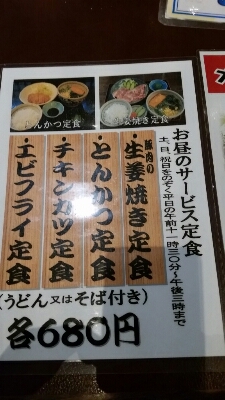 お昼のサービス定食
土、日、祝日をのぞく平日の午前十一時三〇分～午後三時まで
とんかつ定食
焼き定食
豚肉の
生姜焼き定食
とんかつ定食
チキンカツ定食
エビフライ定食
(うどん又はそば付き)
各680円